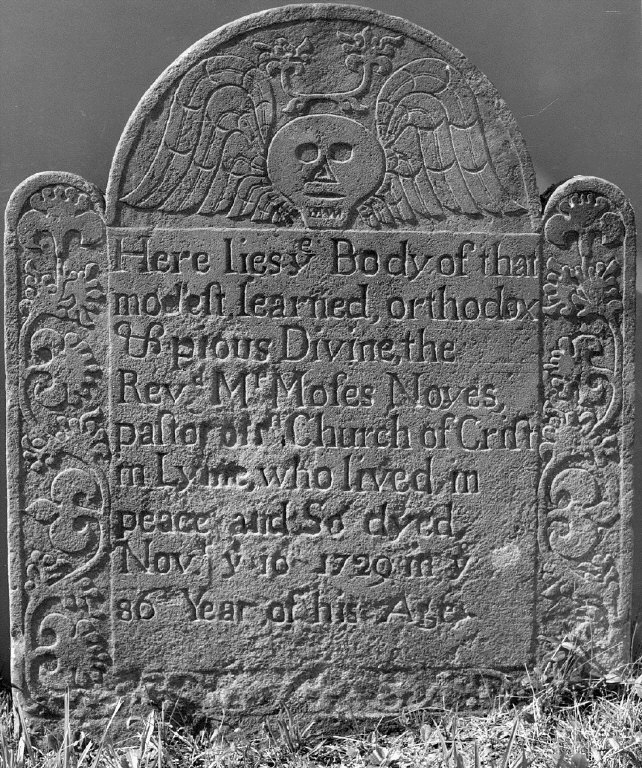 Here lies yᵉ Body of that
modest, learned, orthodox
& pious Divine, the
Revᵈ Mʳ Moses Noyes,
pastor of yᵉ Church of Crist
in Lyme, who lived in
peace and So dyed
Novʳ yᵉ 10 1729 in yᵉ
86 Year of his Age